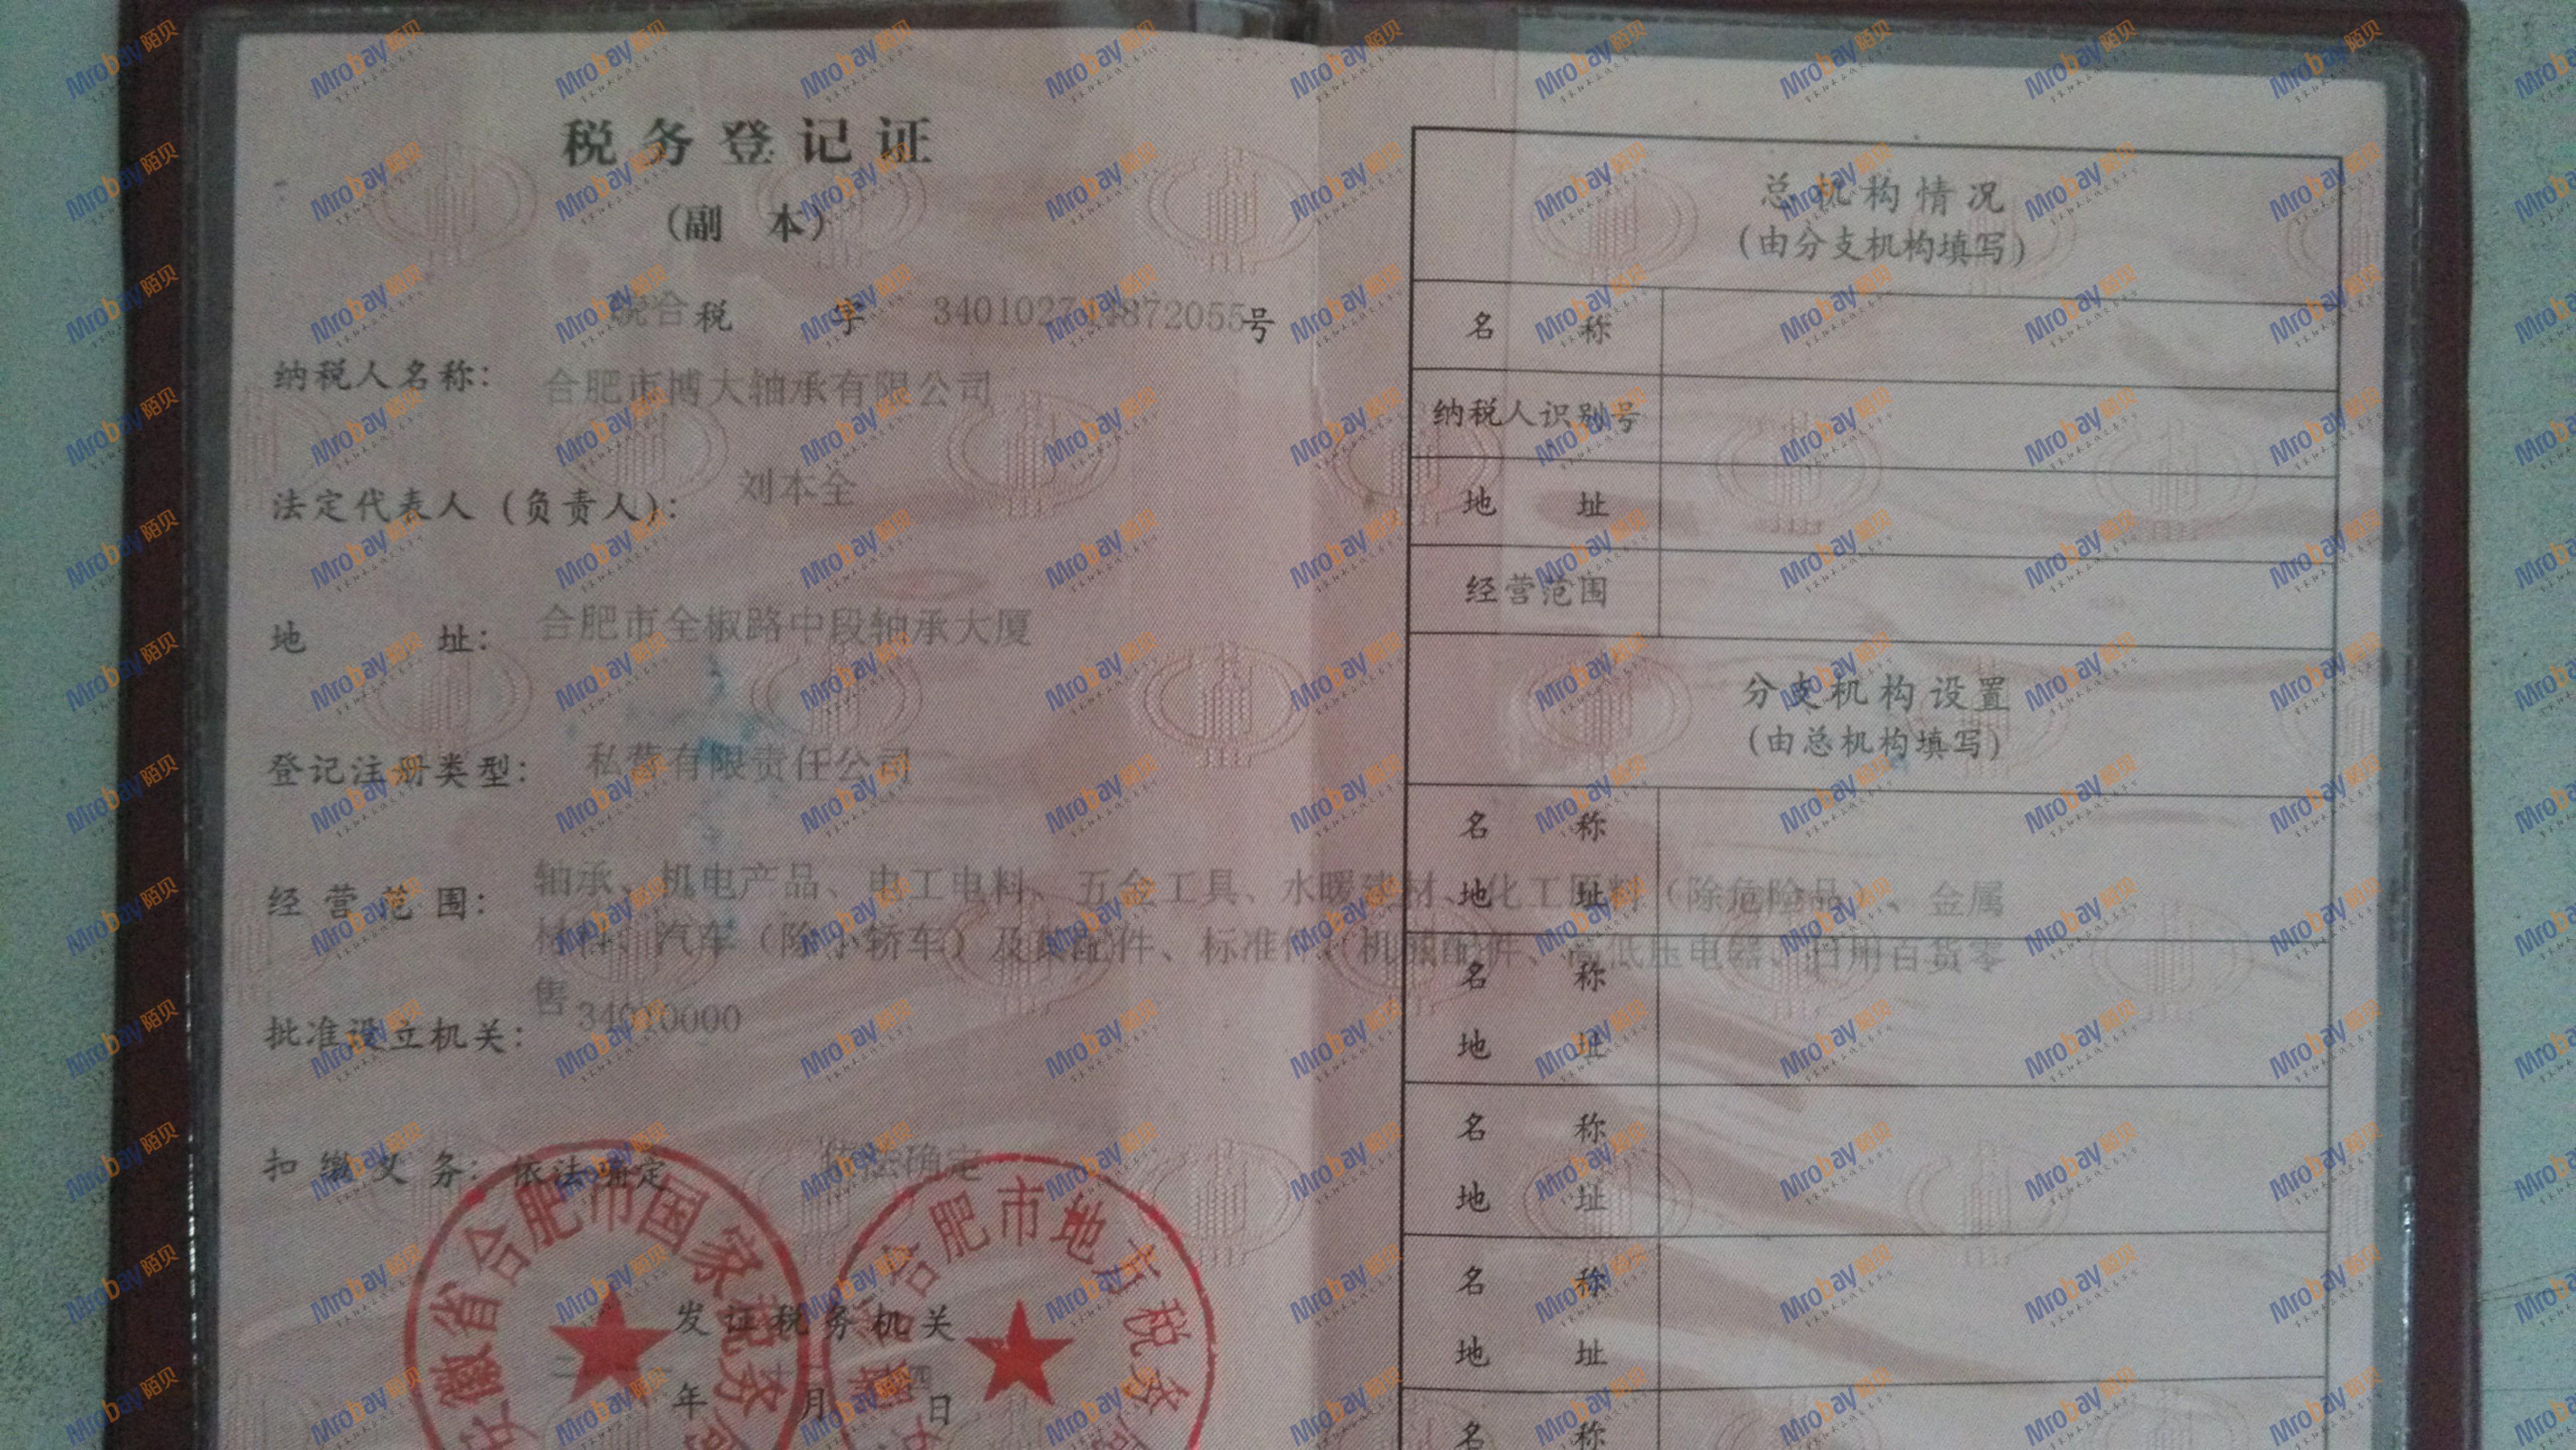 税务登记证
(副 本)
皖合 税 字 340102744872055号
纳税人名称: 合肥市博大轴承有限公司
法定代表人 (负责人): 刘本全
地 址: 合肥市全椒路中段轴承大厦
登记注册类型: 私营有限责任公司
经营范围: 轴承、机电产品、电工电料、五金工具、水暖建材、化工原料(除危险品)、金属
材料、汽车(除小轿车)及其配件、标准件、机械配件、高低压电器、日用百货零
售
批准设立机关: 34010000
扣缴义务: 依法确定 依法确定
安徽省合肥市国家税务局
安徽省合肥市地方税务局
发证税务机关
年 月 日
总机构情况
(由分支机构填写)
名 称
纳税人识别号
地 址
经营范围
分支机构设置
(由总机构填写)
名 称
地 址
名 称
地 址
名 称
地 址
名 称
地 址
名 称
Mrobay陌贝